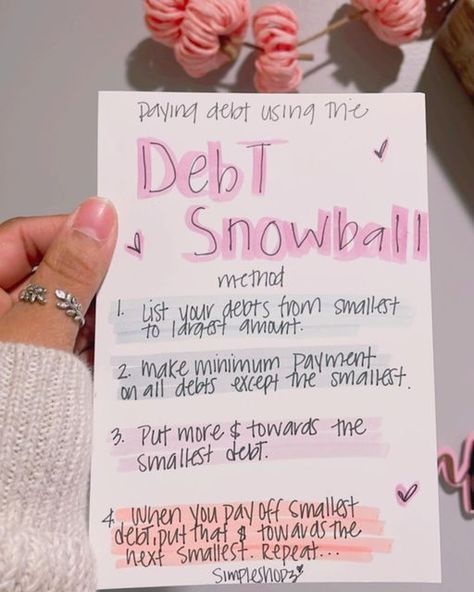 paying debt using the
Debt
Snowball
method
1. List your debts from smallest
to largest amount.
2. make minimum payment
on all debts except the smallest.
3. Put more $ towards the
smallest debt.
4. When you pay off smallest
debt, put that $ towards the
next smallest. Repeat...